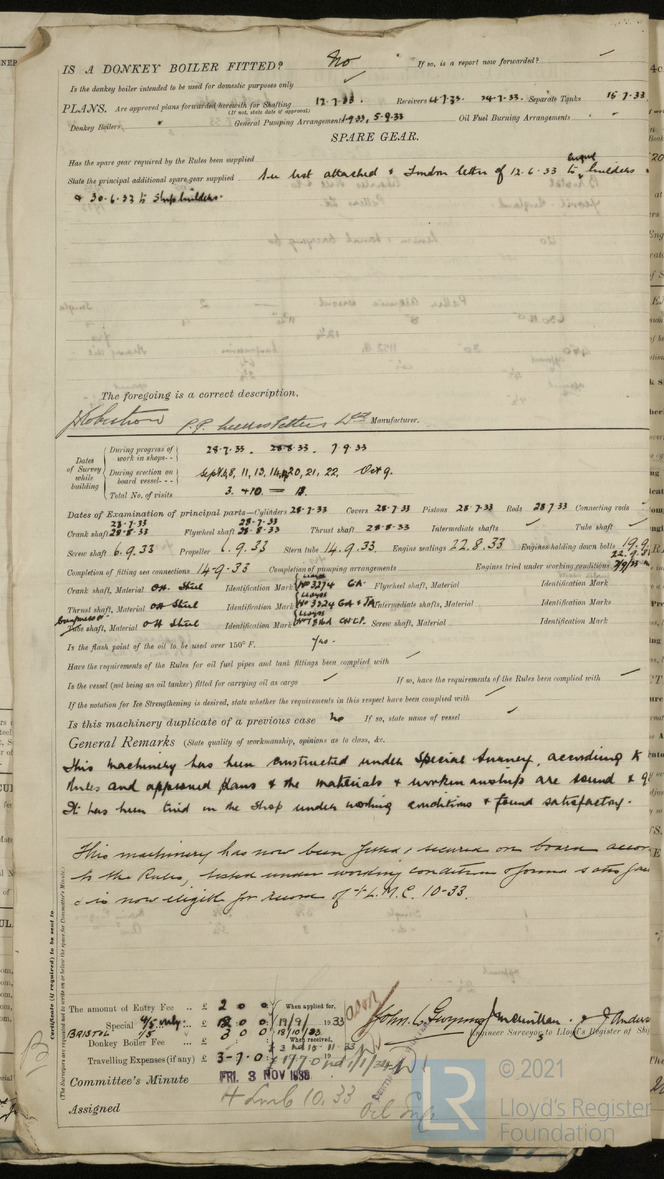 IS A DONKEY BOILER FITTED? No If so, is a report now forwarded?
Is the donkey boiler intended to be used for domestic purposes only
PLANS. Are approved plans forwarded herewith for Shafting 12.7.33. Receivers 4.7.33 24.7.33. Separate Tanks 15.7.33
(If not, state date of approval)
Donkey Boilers General Pumping Arrangements 1.9.33, 5.9.33 Oil Fuel Burning Arrangements
SPARE GEAR.
Has the spare gear required by the Rules been supplied
State the principal additional spare gear supplied See list attached & London letter of 12.6.33 to engine builders
& 30.6.33 to Shipbuilders.
The foregoing is a correct description,
J Robertson Manufacturer.
Dates of Survey while building
During progress of work in shops-- 28.7.33. 28.8.33. 7.9.33
During erection on board vessel--- Sept 6, 8, 11, 13, 14, 20, 21, 22. Oct 9.
Total No. of visits 3. +10 = 13.
Dates of Examination of principal parts—Cylinders 28.7.33 Covers 28.7.33 Pistons 28.7.33 Rods 28.7.33 Connecting rods
Crank shaft 28.7.33 28.8.33 Flywheel shaft 28.7.33 28.8.33 Thrust shaft 28.8.33 Intermediate shafts Tube shaft
Screw shaft 6.9.33 Propeller 6.9.33 Stern tube 14.9.33 Engine seatings 22.8.33 Engines holding down bolts 19.9.
Completion of fitting sea connections 14-9-33 Completion of pumping arrangements Engines tried under working conditions
Crank shaft, Material O.H. Steel Identification Mark Lloyds No 3274 GA Flywheel shaft, Material Identification Mark
Thrust shaft, Material O.H Steel Identification Mark Lloyds No 3224 GA & TA Intermediate shafts, Material Identification Marks
Tube shaft, Material O.H Steel Identification Mark Lloyds Screw shaft, Material Identification Mark
Is the flash point of the oil to be used over 150° F. Yes.
Have the requirements of the Rules for oil fuel pipes and tank fittings been complied with
Is the vessel (not being an oil tanker) fitted for carrying oil as cargo If so, have the requirements of the Rules been complied with
If the notation for Ice Strengthening is desired, state whether the requirements in this respect have been complied with
Is this machinery duplicate of a previous case no If so, state name of vessel
General Remarks (State quality of workmanship, opinions as to class, &c.
This machinery has been constructed under Special Survey, according to
Rules and approved plans & the materials & workmanship are sound &
It has been tried in the Shop under working conditions & found satisfactory.
This machinery has now been fitted & secured on board
to the Rules, tested under working condition & found
& is now eligible for record of + L.M.C. 10-33.
Certificate (if required) to be sent to
(The Surveyors are requested not to write on or below the space for Committee's Minute.)
The amount of Entry Fee .. £ 2 : 0 : 0 When applied for,
Special 4/5 only .. £ 12 : 0 : 0 19/9/1933
BRISTOL 1/5 3 0 0 18/10/33
Donkey Boiler Fee .. £ When received,
Travelling Expenses (if any) £ 3-7.0
Engineer Surveyor to Lloyd's Register of
Committee's Minute FRI. 3 NOV 1933
Assigned + Lmc 10.33
Oil Eng
LR
© 2021
Lloyd's Register
Foundation